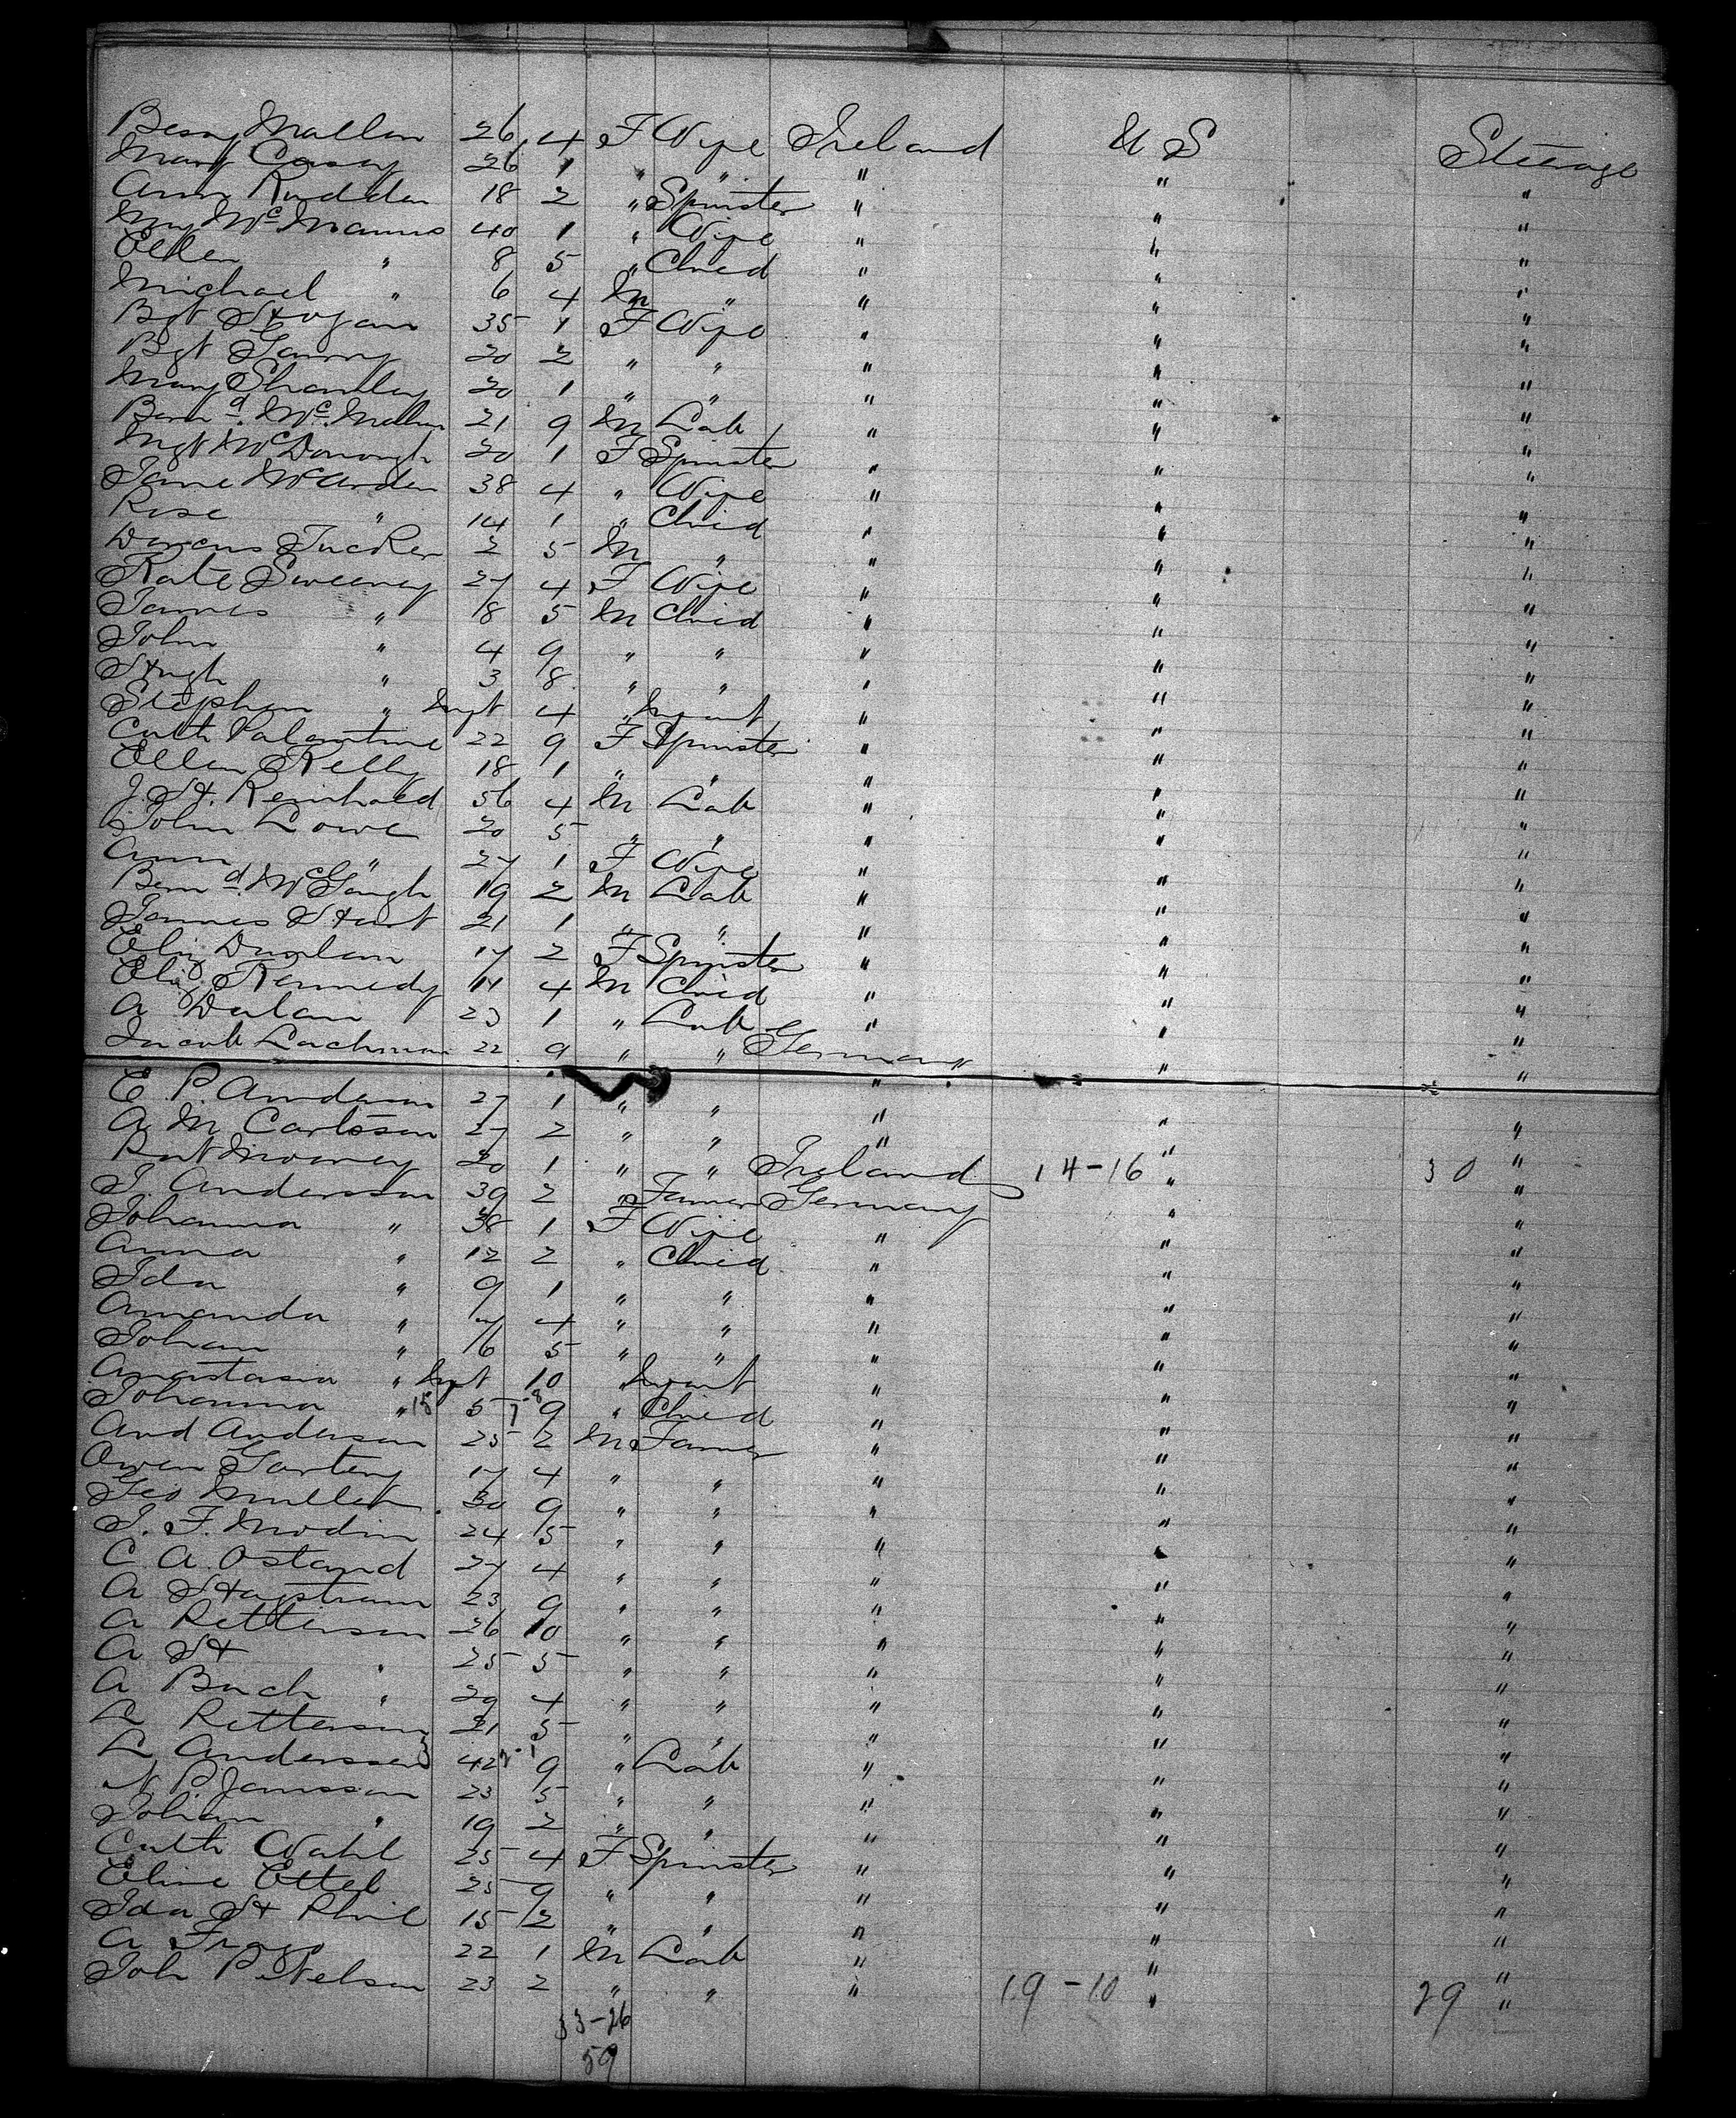 Bessy Mallon 26 4 F Wife Ireland U S Steerage
Mary Casey 26 1 " " " " "
Ann Rudden 18 2 " Spinster " " "
My McManus 40 1 " Wife " " "
Ellen " 8 5 " Child " " "
Michael " 6 4 M " " " "
Bgt Hogan 35 1 F Wife " " "
Bgt 20 2 " " " " "
Mary Shanley 20 1 " " " " "
Bernd. McMellon 21 9 M Lab " " "
Mgt McDonough 20 1 F Spinster " " "
Jane McArden 38 4 " Wife " " "
Rose " 14 1 " Child " " "
Tucker 2 5 M " " " "
Kate Sweeney 27 4 F Wife " " "
James " 8 5 M Child " " "
John " 4 9 " " " " "
Hugh " 3 8 " " " " "
Stephen " Inft 4 " Infant " " "
Cath Valentine 22 9 F Spinster " " "
Ellen Kelly 18 1 " " " " "
J. H. Reinhold 56 4 M Lab " " "
John Lowe 20 5 " " " " "
Ann " 27 1 F Wife " " "
Bernd McGough 19 2 M Lab " " "
James Hunt 21 1 " " " " "
Eliz Dunlam 17 2 F Spinster " " "
Eliz Kennedy 11 4 M Child " " "
A Dulan 23 1 " Lab " " "
Jacob Lachman 22 9 " " Germany " "
E P. Anderson 27 1 " " " " "
A M Carlsson 27 2 " " " " "
Pat Mooney 20 1 " " Ireland 14-16 " 30 "
J. Andersson 39 2 " Farmer Germany " "
Johanna " 38 1 F Wife " " "
Anna " 12 2 " Child " " "
Ida " 9 1 " " " " "
Amanda " 7 4 " " " " "
Johan " 6 5 " " " " "
Anastasia " Inft 10 " Infant " " "
Johanna " 5 9 " Child " " "
And Anderson 25 2 M Farmer " " "
Owen 17 4 " " " " "
Geo Mullen 30 9 " " " " "
J. F. Modin 24 5 " " " " "
C. A. Ostand 27 4 " " " " "
A Hagstrum 23 9 " " " " "
A Petterson 26 10 " " " " "
A H " 25 5 " " " " "
A Buch " 29 4 " " " " "
A Petterson 21 5 " " " " "
L Andersson 42 9 " Lab " " "
N P. Jansson 23 5 " " " " "
Johan " 19 2 " " " " "
Cath Wahl 25 4 F Spinster " " "
Eline Ettel 25 9 " " " " "
Ida H Phil 15 2 " " " " "
A 22 1 M Lab " " "
Joh P. Nelson 23 2 " " " 19-10 " 29 "
33-26
59